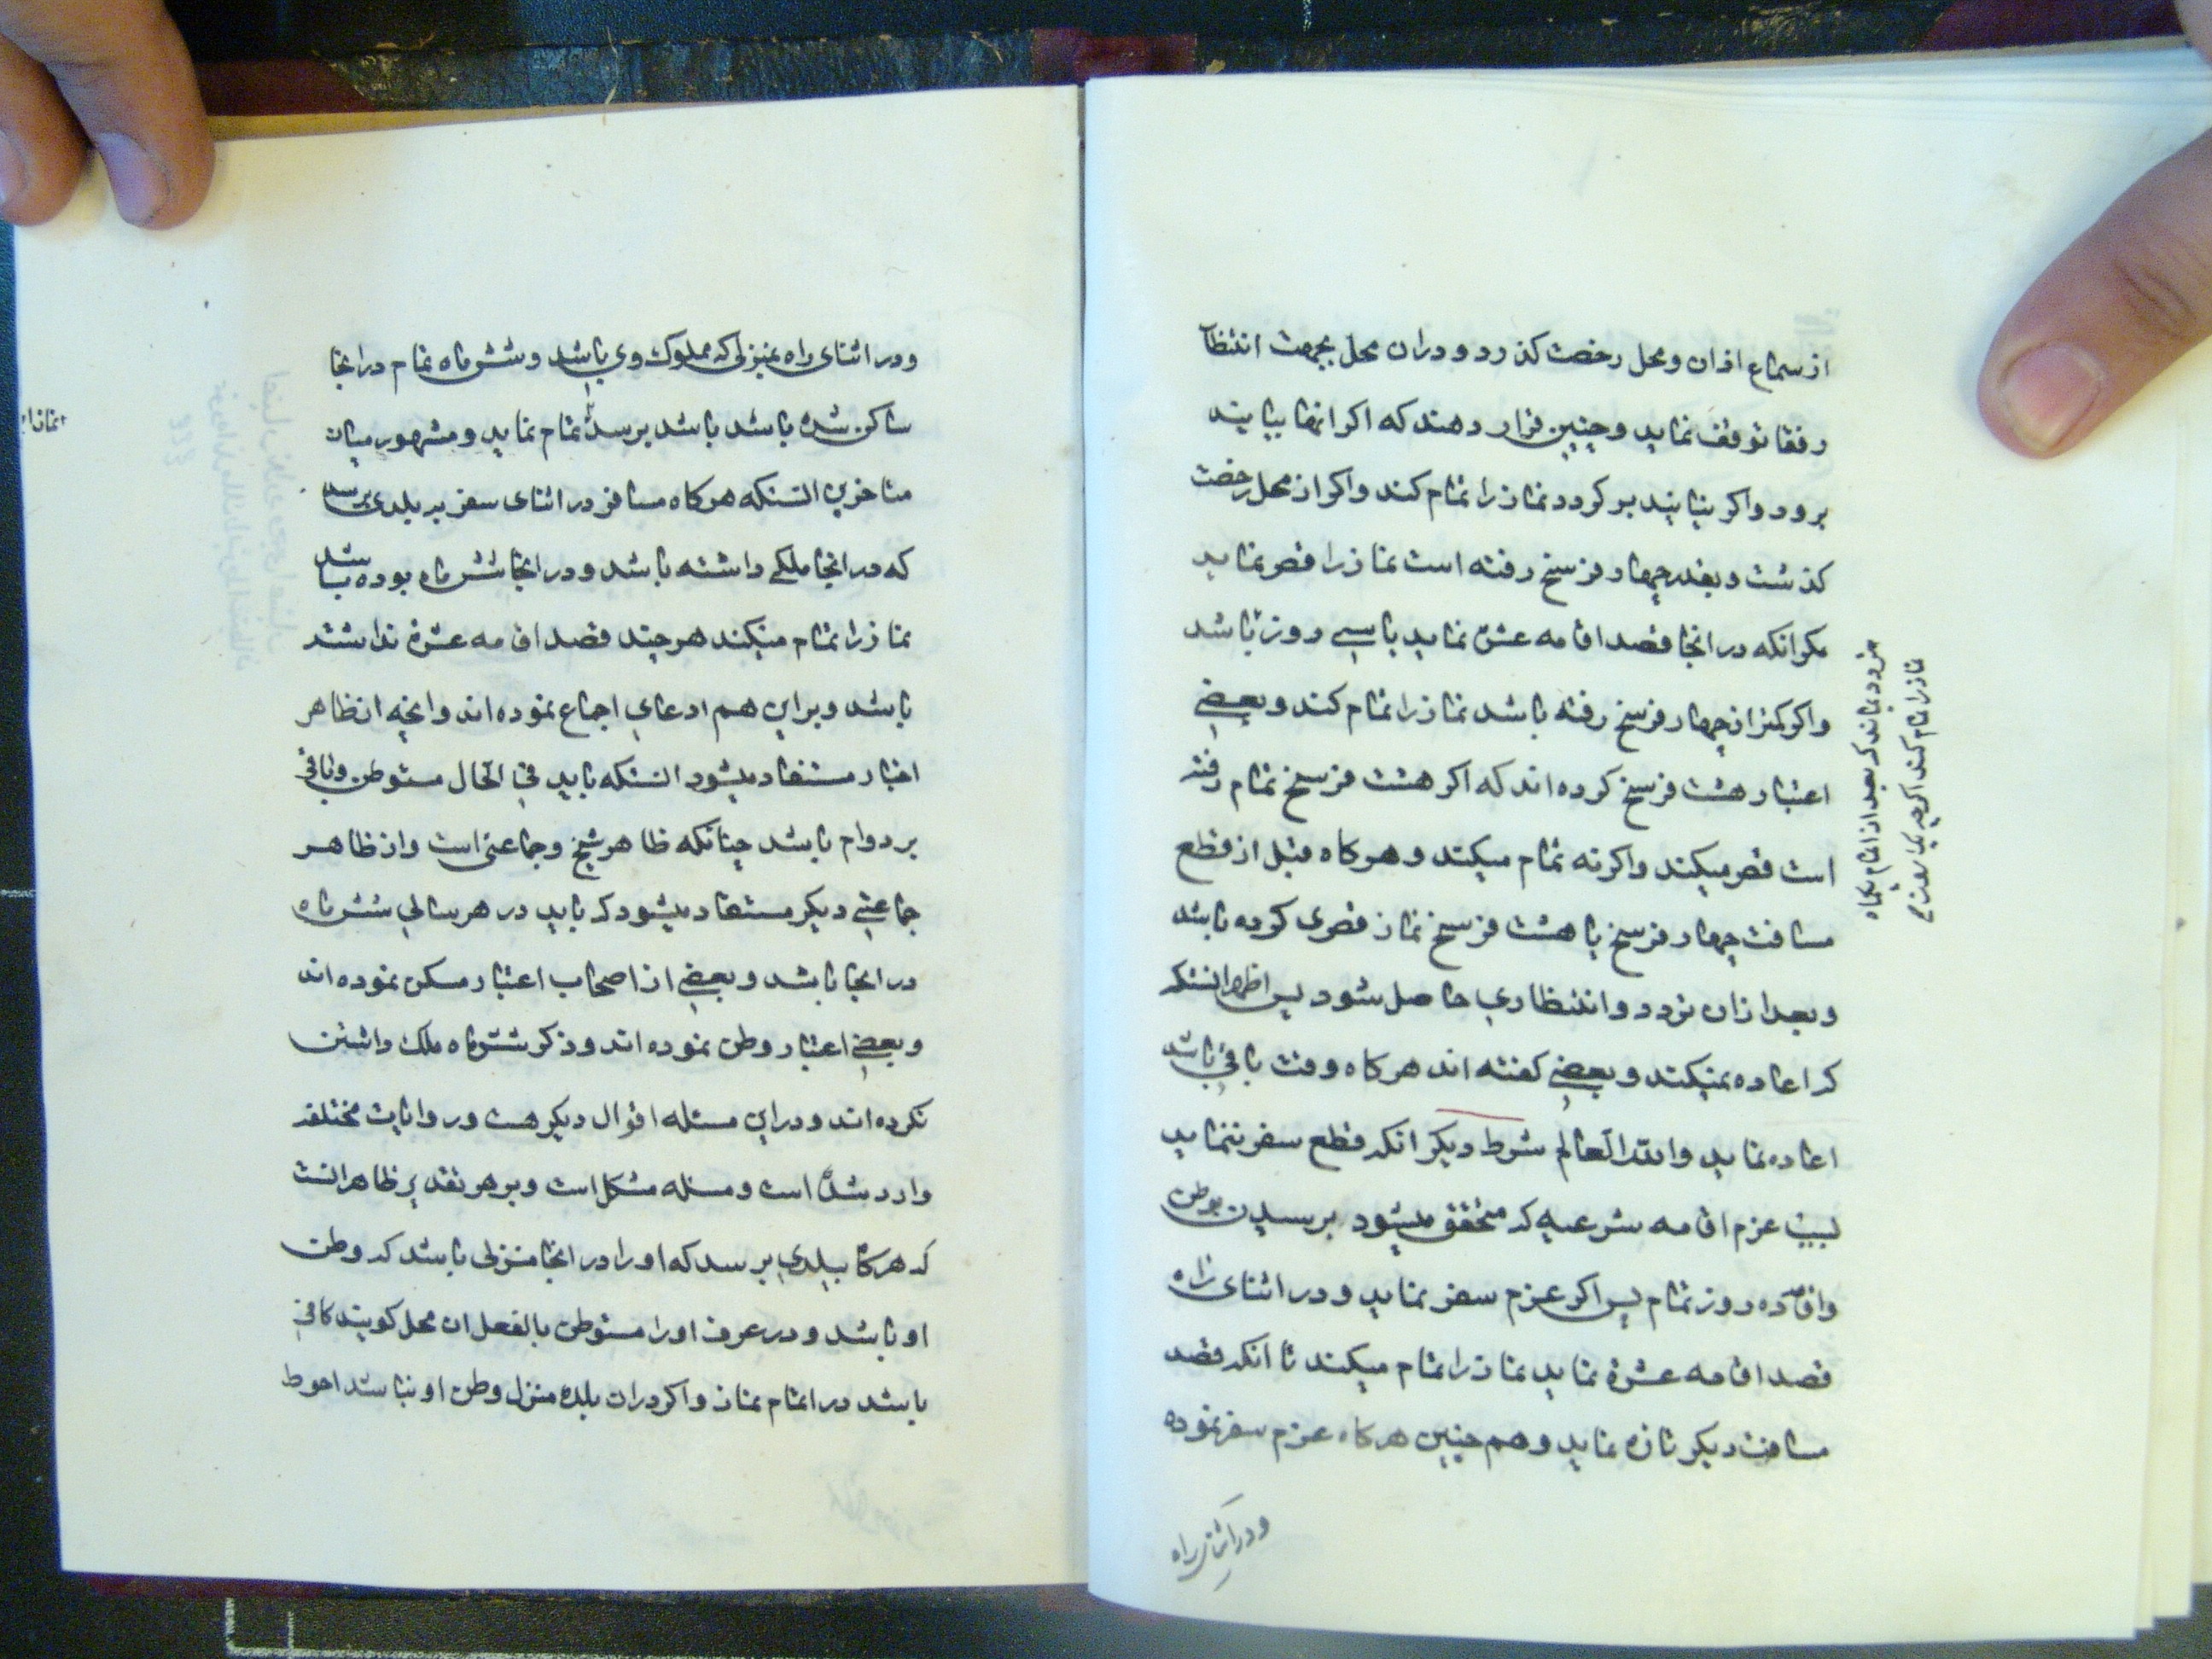 از سماع اذان و محل رخصت كذرد و دران محل بجهت انتظار
رفقا توقف نمايد و چنين قرار دهند كه اكر انها بيايند
برود واكر نيايند بركردد نماز را تمام كند واكر از محل رخصت
كذشت و بقدر چهار فرسخ رفته است نماز را قصر نمايد
مكر انكه در انجا قصد اقامه عشره نمايد يا سى روز باشد
واكر كمتر از چهار فرسخ رفته باشد نماز را تمام كند و بعضى
اعتبار هشت فرسخ كرده اند كه اكر هشت فرسخ تمام رفته
است قصر ميكند واكر نه تمام ميكند و هركاه قبل از قطع
مسافت چهار فرسخ يا هشت فرسخ نماز قصرى كرده باشد
و بعد از ان تردد و انتظارى حاصل شود پس اظهر انستكه
كه اعاده نميكند و بعضى كفته اند هركاه وقت باقى باشد
اعاده نمايد والله العالم شرط ديكر انكه قطع سفر ننمايد
بسبب عزم اقامه شرعيه كه متحقق ميشود برسيدن بوطن
واقامه ده روز تمام پس اكر عزم سفر نمايد و در اثناى راه
قصد اقامه عشره نمايد نماز را تمام ميكند تا انكه قصد
مسافت ديكر تازه نمايد و هم چنين هركاه عزم سفر نموده
و در اثناى راه
بعد از اتمام يكماه
نماز را تمام كند اكرچه يك
و در اثناى راه بمنزلى كه مملوك وى باشد و شش ماه تمام در انجا
ساكن شده باشد باشد برسد تمام نمايد و مشهور ميان
متاخرين انستكه هركاه مسافر در اثناى سفر به بلدى برسد
كه در انجا ملكى داشته باشد و در انجا شش ماه بوده باشد
نماز را تمام ميكند هر چند قصد اقامه عشره نداشته
باشد و براين هم ادعاى اجماع نموده اند وانچه از ظاهر
اخبار مستفاد ميشود انستكه بايد فى الحال متوطن و باقى
بر دوام باشد چنانكه ظاهر شيخ و جماعتى است واز ظاهر
جماعتى ديكر مستفاد ميشود كه بايد در هر سالى شش ماه
در انجا باشد و بعضى از اصحاب اعتبار مسكن نموده اند
و بعضى اعتبار وطن نموده اند و ذكر شش ماه ملك داشتن
نكرده اند و دراين مسئله اقوال ديكر هست و روايات مختلفه
وارد شده است و مسئله مشكل است و بر هر تقدير ظاهر انست
كه هركاه ببلدى برسد كه او را در انجا منزلى باشد كه وطن
او باشد و در عرف او را متوطن بالفعل ان محل كويند كافى
باشد در اتمام نماز واكر در ان بلده منزل وطن او نباشد احوط